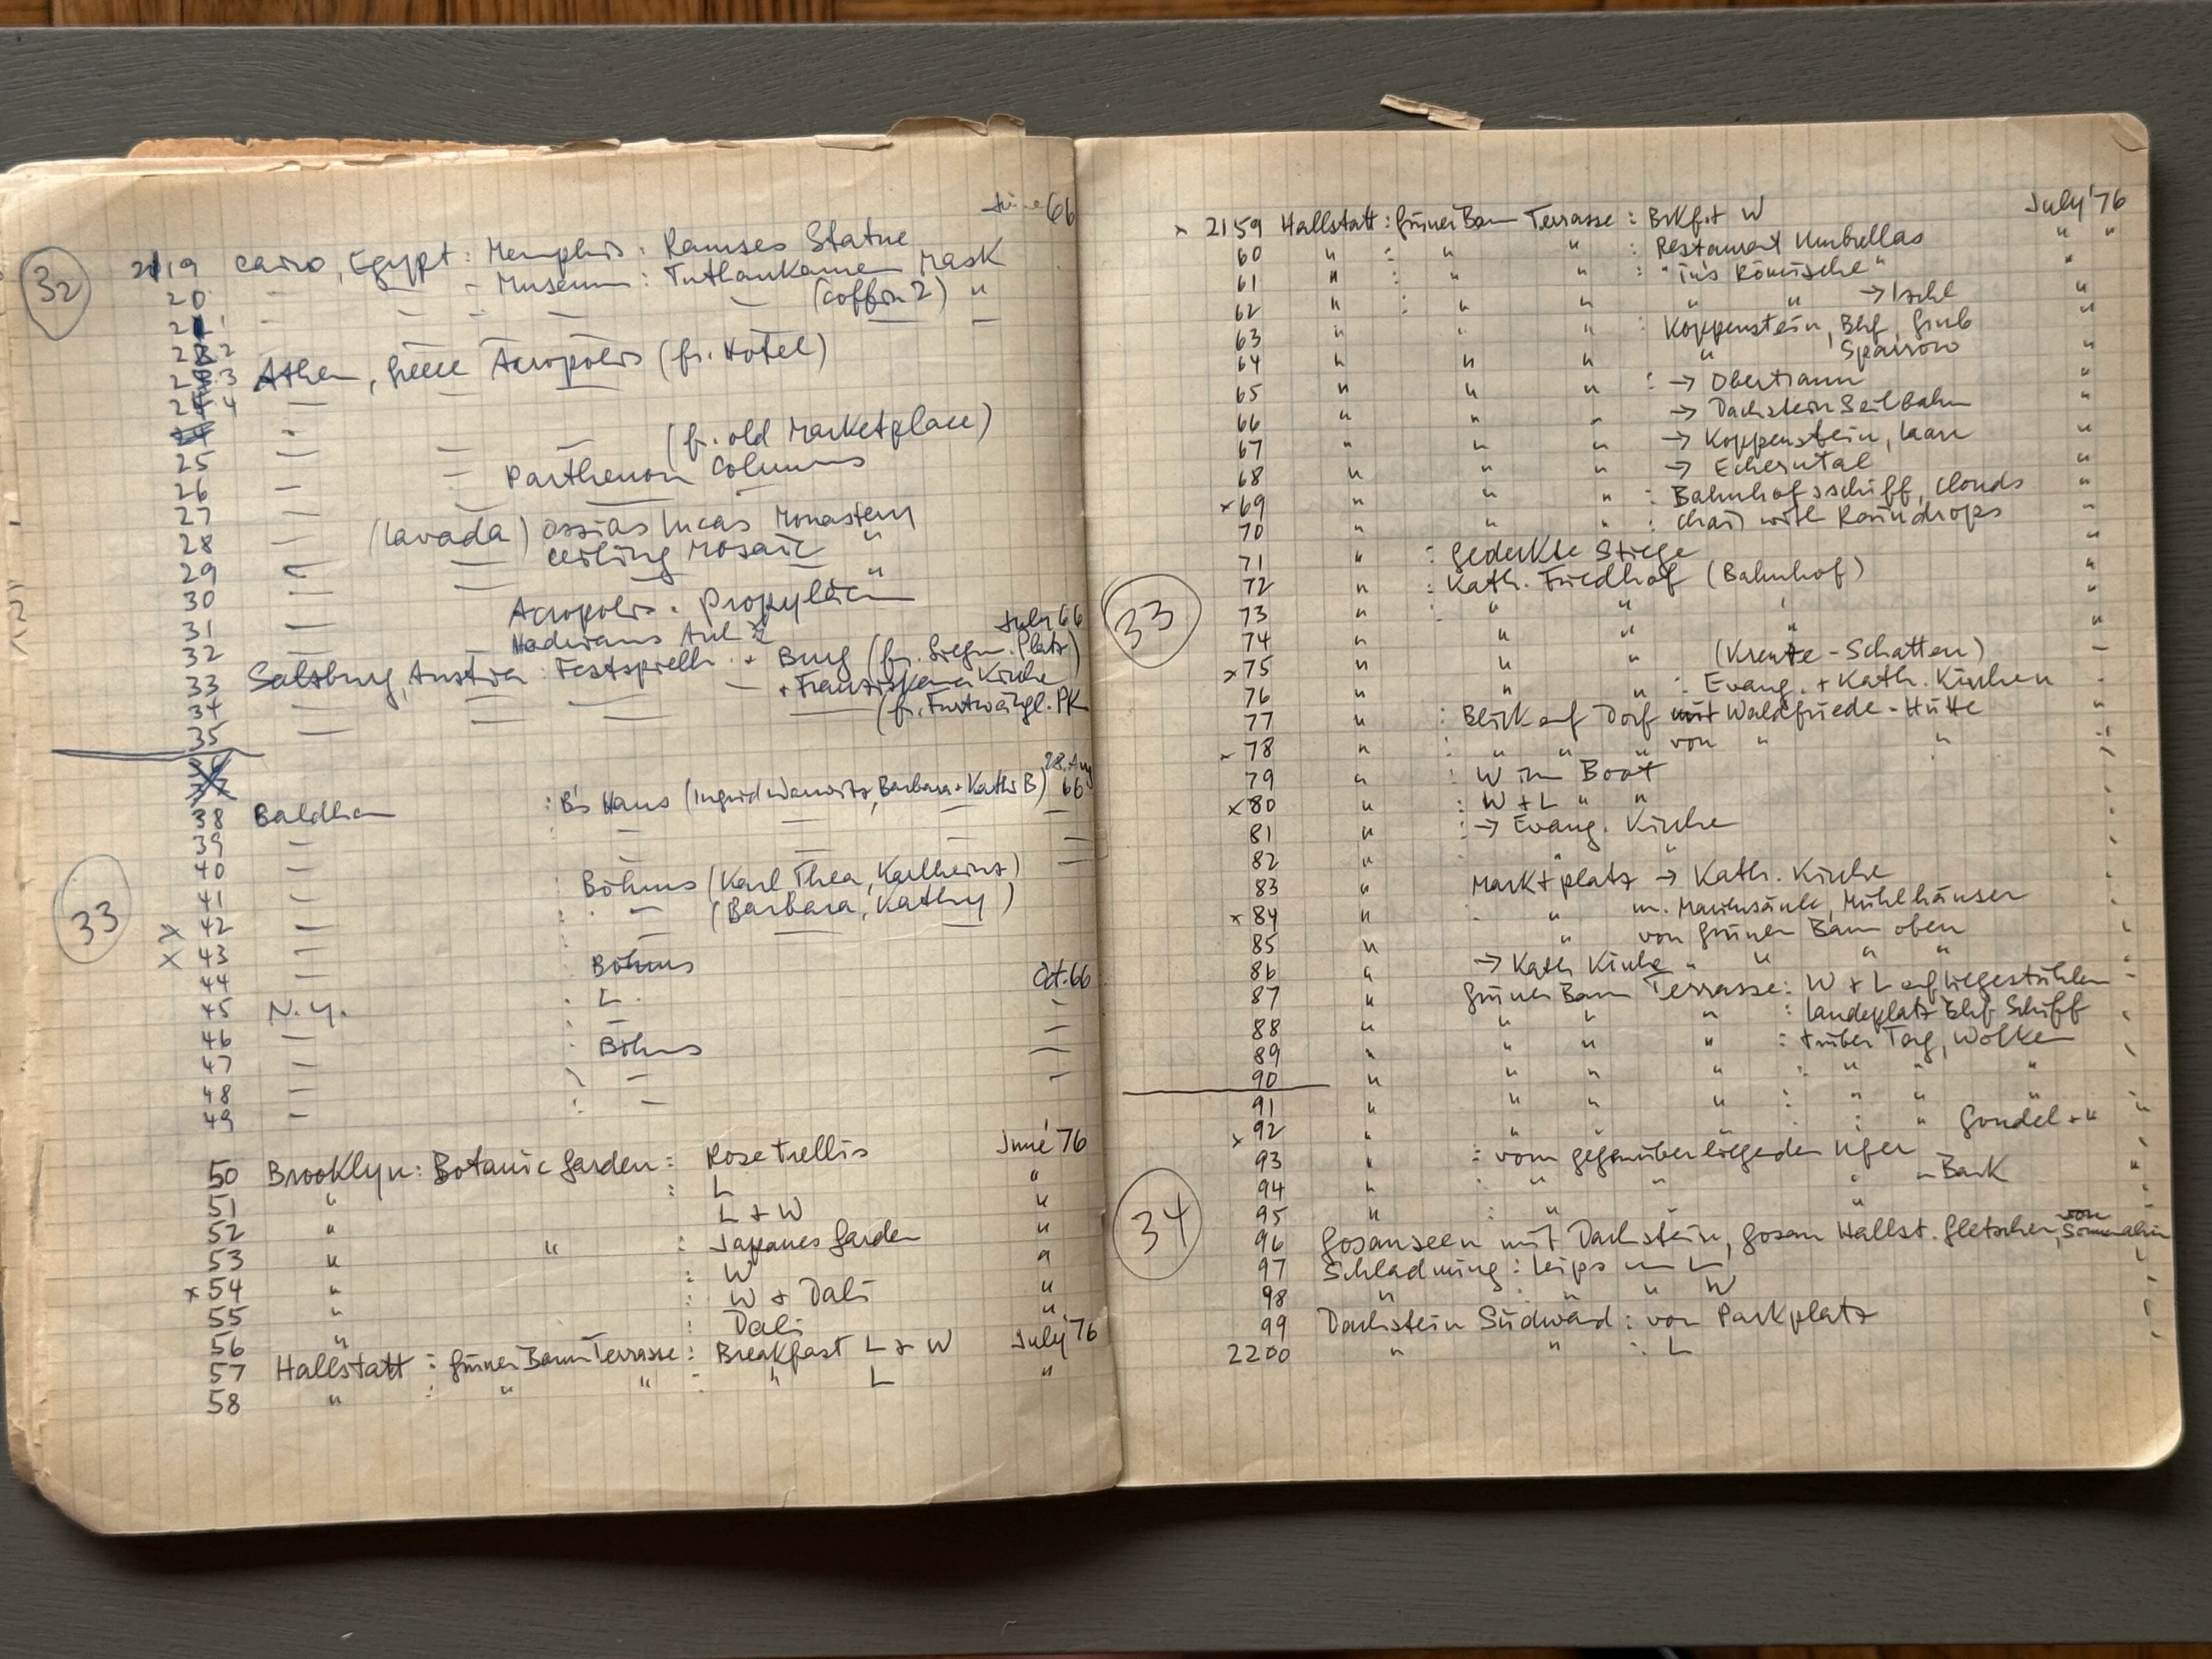 June 66
32
2119 Cairo, Egypt : Memphis : Ramses Statue
20 — — - Museum : Tutkankamen Mask
21 - — - — — (coffin 2) "
22 — —
23 Athen, Acropolis (fr. Hotel)
24 — — —
25 — — (fr. old Marketplace)
26 — — Parthenon Columns
27 — — — —
28 — (Lavada) Ossias Lucas Monastery
29 — — ceiling Mosaic "
30 — — — — "
31 — Acropolis . Propyläen
32 — Hadrians July 66
33 Salzburg, Austria : Festspielh. + Burg (fr. Siegm. Platz)
34 — — — — + Franziskaner Kirche
35 — — — — (fr. Furtwängl. PK
28. Aug 66
38 Baldham : B's Haus (Ingrid, Barbara + Kathi B)
39 — — — — —
40 — — — — —
41 — : Böhms (Karl Thea, Karlheinz)
33
x 42 — : — (Barbara, Kathy)
x 43 — : — — —
44 — Böhms
45 N.Y. : L. Oct. 66
46 — : — —
47 — : Böhms —
48 — : — —
49 — : — —
50 Brooklyn : Botanic Garden : Rose trellis June '76
51 " : L "
52 " L + W "
53 " " : Japanes Garden "
x 54 " : W "
55 " : W + Dali "
56 " : Dali "
57 Hallstatt : Grüner Baum Terrasse : Breakfast L + W July '76
58 " : " " : " L "
x 2159 Hallstatt : Grüner Baum Terrasse : Brkfst W July '76
60 " : " " : Restaurant Umbrellas " "
61 " : " " : "ins Römische" "
62 " : " " " " → Ischl "
63 " " " : Koppenstein, Bhf, Grub "
64 " " " " Sparrow "
65 " " " : → Obertraun "
66 " " " → Dachstein Seilbahn "
67 " " " → Koppenstein, "
68 " " " → Echerntal "
x 69 " " " : Bahnhofsschiff, Clouds "
70 " " " : Chair with Raindrops "
71 " : Gedeckte Stiege "
33
72 " : Kath. Friedhof (Bahnhof) "
73 " : " " " "
74 " " " " "
x 75 " " " (Kreuze - Schatten) —
76 " " " : Evang. + Kath. Kirchen -
77 " : Blick auf Dorf mit Waldfriede - Hütte "
x 78 " : " " " von " " "
79 " : W im Boot
x 80 " : W + L " "
81 " : → Evang. Kirche
82 " : " "
83 " Marktplatz → Kath. Kirche
x 84 " : " m. Mariensäule, Mühlhäuser
85 " " von Grüner Baum oben
86 " → Kath Kirche " " " "
87 " Grüner Baum Terrasse : W + L auf Liegestühlen
88 " " " " : Landeplatz Bhf Schiff
89 " " " " : trüber Tag, Wolken
90 " " " " : " " "
91 " " " " : " " "
x 92 " " " " : " Gondel + "
93 " : vom gegenüberliegenden Ufer
34
94 " : " " " " Bank "
95 " : " " "
96 Gosauseen mit Dachstein, Gosau Hallst. Gletscher, von
97 Schladming : L
98 " : " " W
99 Dachstein Südwand : von Parkplatz
2200 " " : L